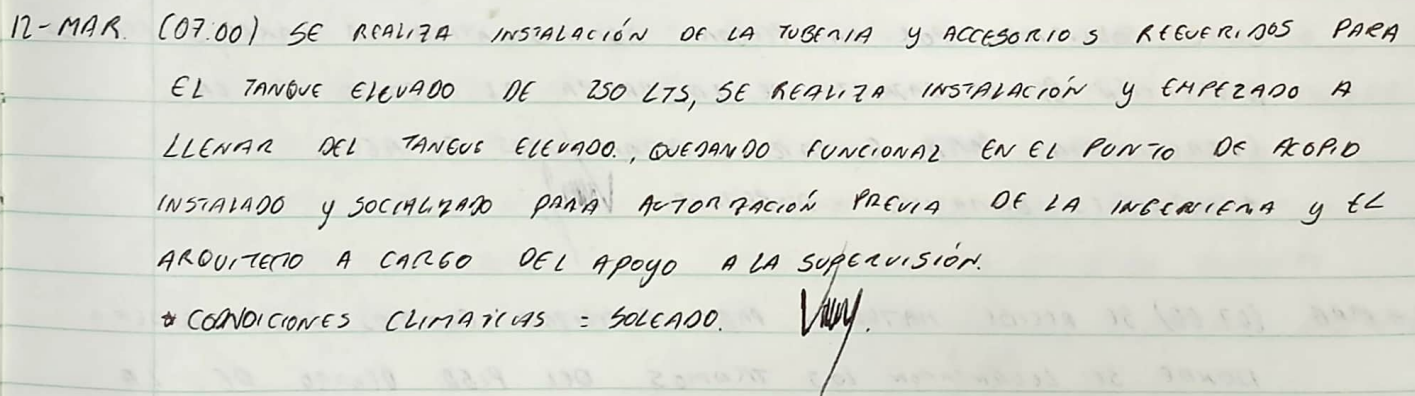 12-MAR. (07:00) SE REALIZA INSTALACIÓN DE LA TUBERIA Y ACCESORIOS REQUERIDOS PARA
EL TANQUE ELEVADO DE 250 LTS, SE REALIZA INSTALACIÓN Y EMPEZADO A
LLENAR DEL TANQUE ELEVADO., QUEDANDO FUNCIONAL EN EL PUNTO DE ACOPIO
INSTALADO Y SOCIALIZADO PARA AUTORIZACIÓN PREVIA DE LA INGENIERA Y EL
ARQUITECTO A CARGO DEL APOYO A LA SUPERVISIÓN.
* CONDICIONES CLIMATICAS = SOLEADO.